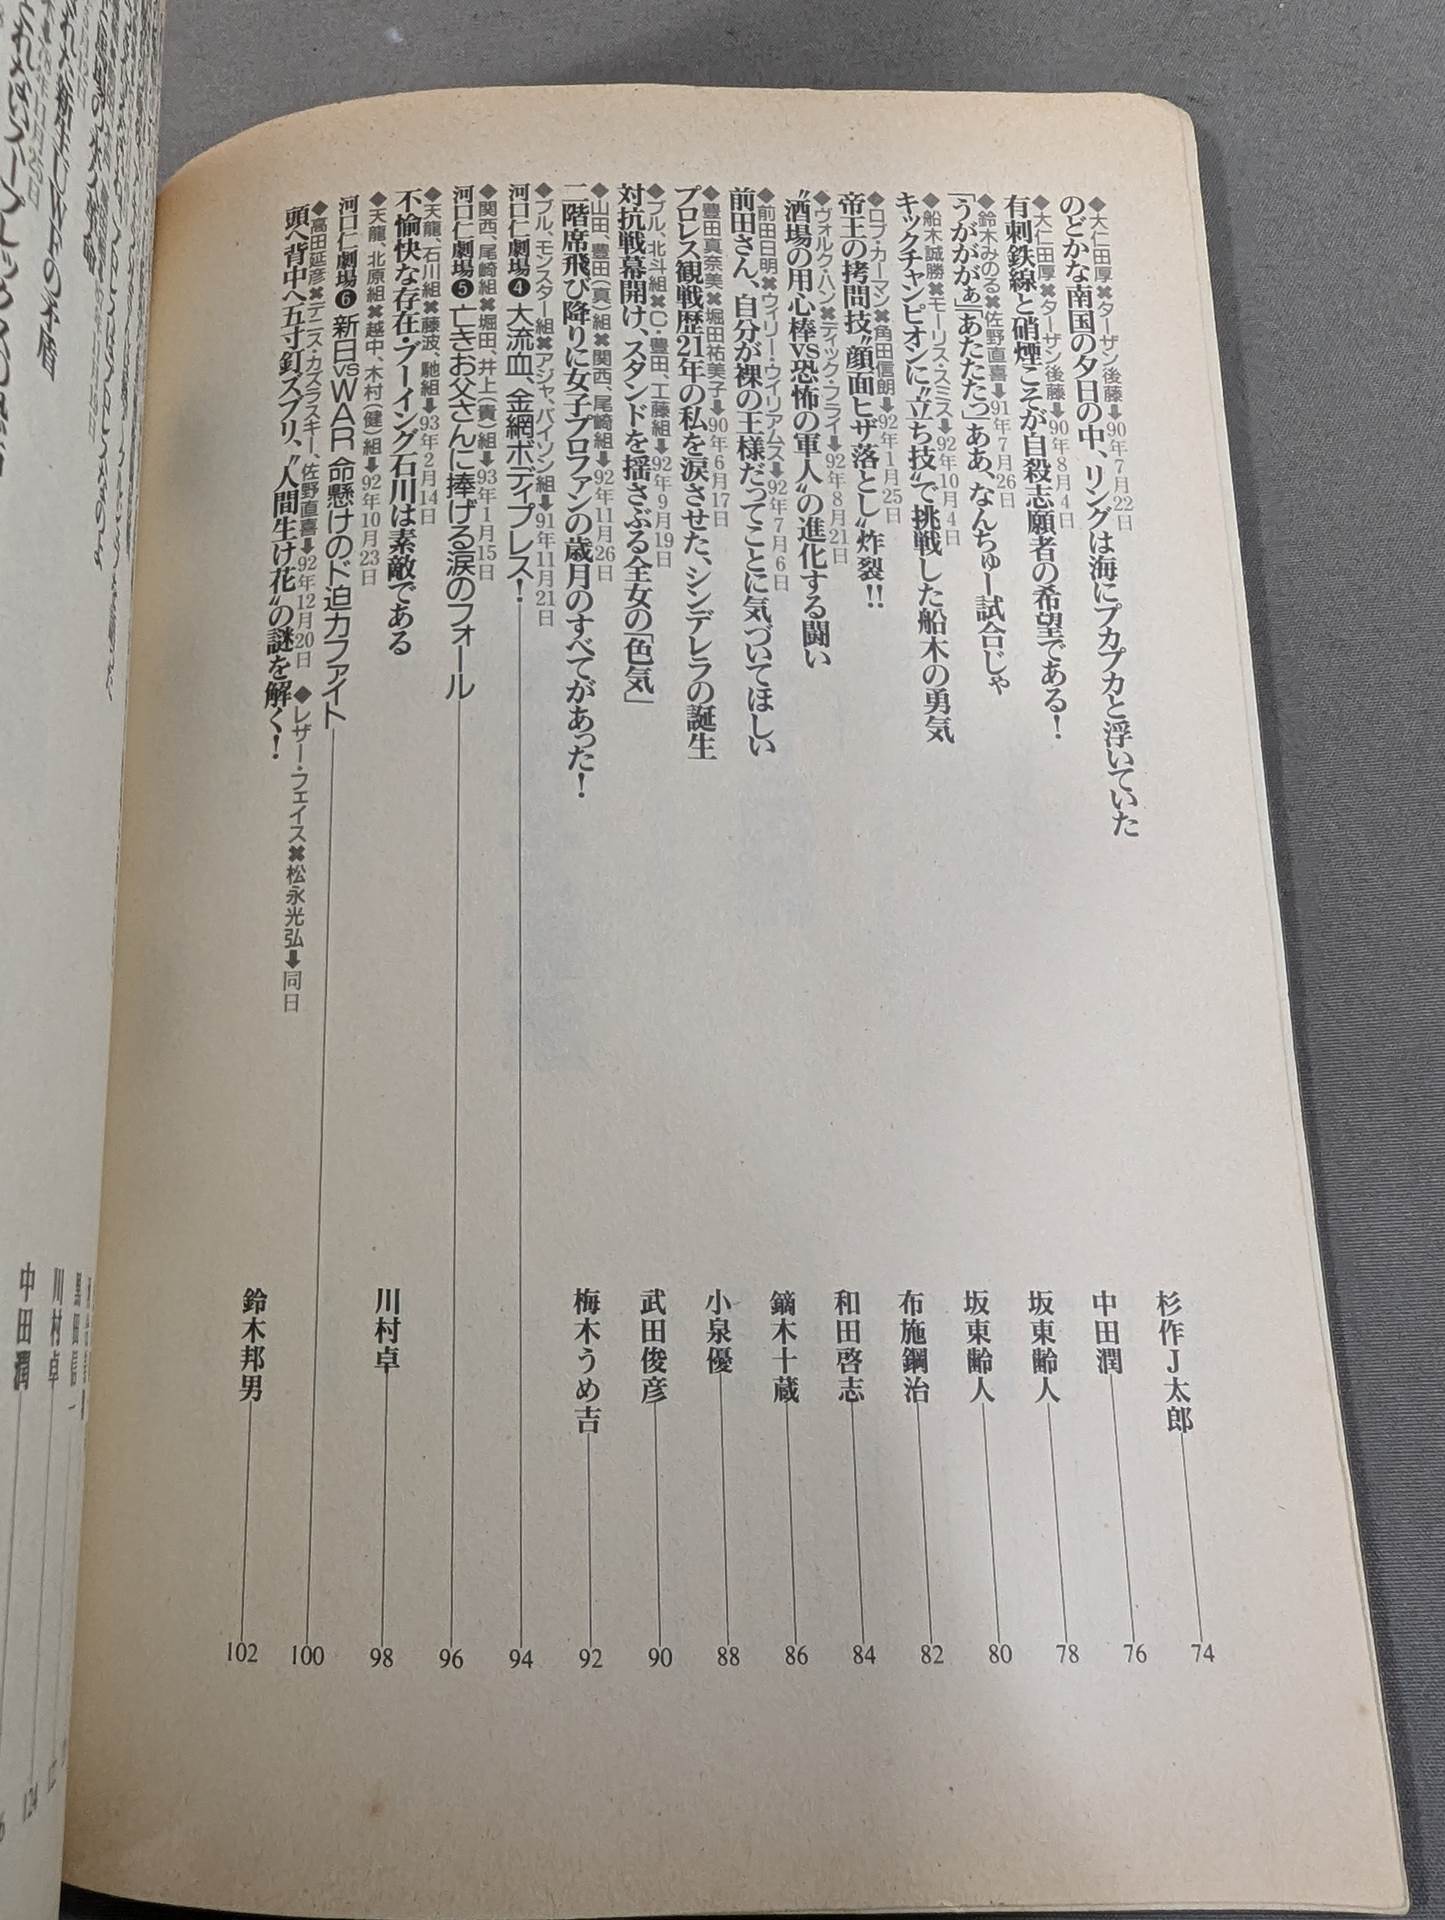 ◆大仁田厚✖ターザン後藤➡90年7月22日
のどかな南国の夕日の中、リングは海にプカプカと浮いていた
杉作J太郎
74
◆大仁田厚✖ターザン後藤➡90年8月4日
有刺鉄線と硝煙こそが自殺志願者の希望である！
中田潤
76
◆鈴木みのる✖佐野直喜➡91年7月26日
「うがががぁ」「あたたたっ」ああ、なんちゅー試合じゃ
坂東齢人
78
◆船木誠勝✖モーリス・スミス➡92年10月4日
キックチャンピオンに〝立ち技〟で挑戦した船木の勇気
坂東齢人
80
◆ロブ・カーマン✖角田信朗➡92年1月25日
帝王の拷問技〝顔面ヒザ落とし〟炸裂!!
布施鋼治
82
◆ヴォルク・ハン✖ディック・フライ➡92年8月21日
〝酒場の用心棒vs恐怖の軍人〟の進化する闘い
和田啓志
84
◆前田日明✖ウィリー・ウイリアムス➡92年7月6日
前田さん、自分が裸の王様だってことに気づいてほしい
鏑木十蔵
86
◆豊田真奈美✖堀田祐美子➡90年6月17日
プロレス観戦歴21年の私を涙させた、シンデレラの誕生
小泉優
88
◆ブル、北斗組✖C・豊田、工藤組➡92年9月19日
対抗戦幕開け、スタンドを揺さぶる全女の「色気」
武田俊彦
90
◆山田、豊田(真)組✖関西、尾崎組➡92年11月26日
二階席飛び降りに女子プロファンの歳月のすべてがあった！
梅木うめ吉
92
◆ブル、モンスター組✖アジャ、バイソン組➡91年11月21日
河口仁劇場❹ 大流血、金網ボディプレス！
94
◆関西、尾崎組✖堀田、井上(貴)組➡93年1月15日
河口仁劇場❺ 亡きお父さんに捧げる涙のフォール
96
◆天龍、石川組✖藤波、馳組➡93年2月14日
不愉快な存在・ブーイング石川は素敵である
川村卓
98
◆天龍、北原組✖越中、木村(健)組➡92年10月23日
河口仁劇場❻ 新日vsWAR 命懸けのド迫力ファイト
100
◆高田延彦✖デニス・カズラスキー、佐野直喜➡92年12月20日 ◆レザー・フェイス✖松永光弘➡同日
頭へ背中へ五寸釘スブリ、〝人間生け花〟の謎を解く！
鈴木邦男
102
川村卓
中田潤
124